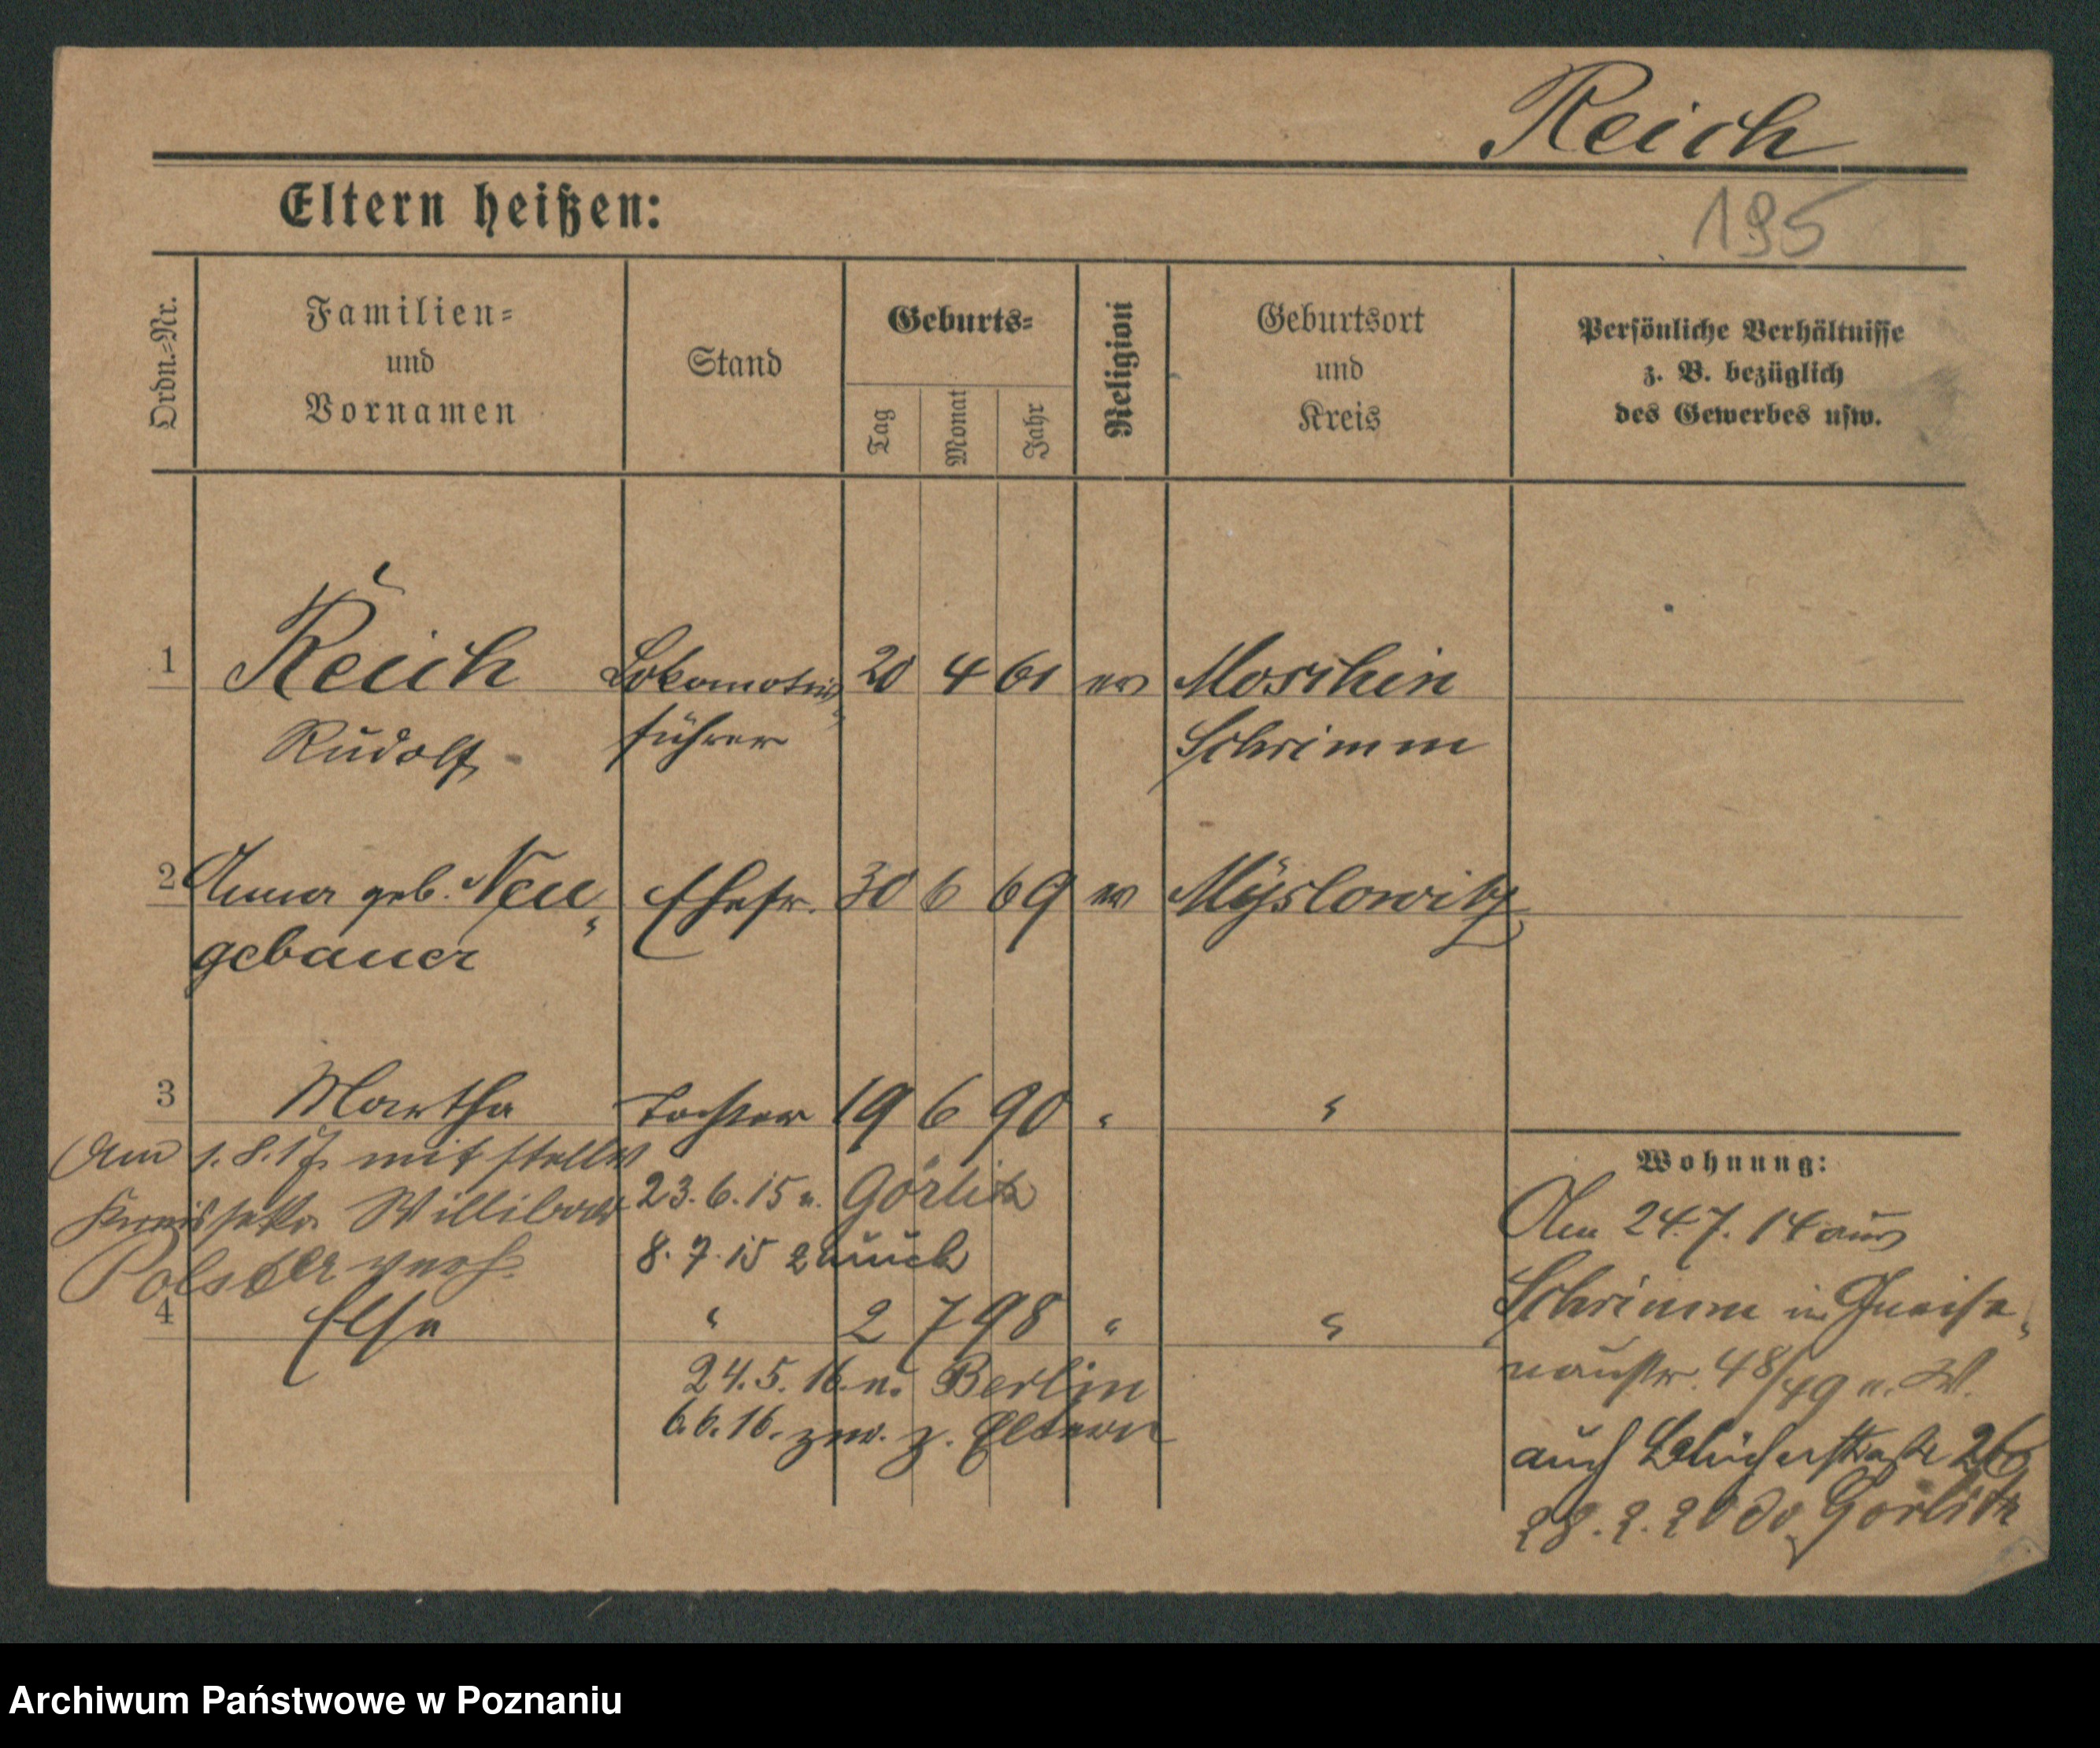 Reich
Eltern heißen:
195
Ordn.-Nr.
Familien-
und
Vornamen
Stand
Geburts-
Tag
Monat
Jahr
Religion
Geburtsort
und
Kreis
Persönliche Verhältnisse
z. B. bezüglich
des Gewerbes usw.
1 Reich Lokomotiv- 20 4 61 ev Moschin
Rudolf führer Schrimm
2 Anna geb. Neu- Ehefr. 30 6 69 ev Myslowitz
gebauer
3 Martha Tochter 19 6 90 " "
Am 1. 8. 17 mit
Willibald
Polster verh.
23. 6. 15 n. Görlitz
8. 7. 15 zurück
4 Else " 2 7 98 " "
24. 5. 16. n. Berlin
6. 6. 16. zur. z. Eltern
Wohnung:
Am 24. 7. 14 aus
Schrimm in Gneise-
naustr. 48/49 n. W.
auch Blücherstraße 26
28. 2. 20 Görlitz
Archiwum Państwowe w Poznaniu